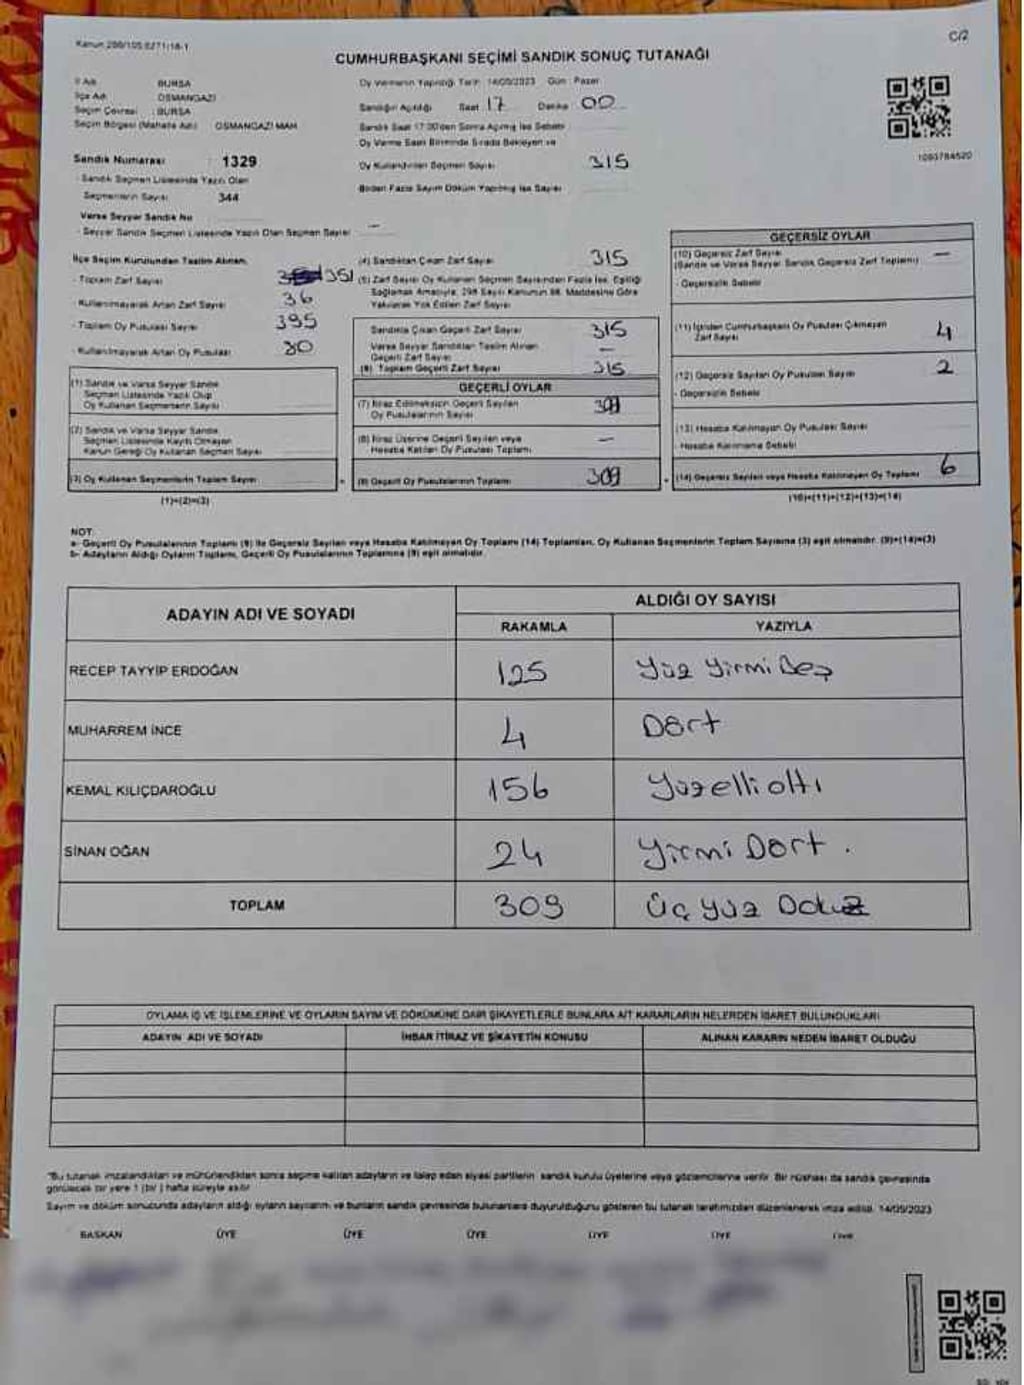 C/2
CUMHURBAŞKANI SEÇİMİ SANDIK SONUÇ TUTANAĞI
İl Adı : BURSA
İlçe Adı : OSMANGAZİ
Seçim Çevresi : BURSA
Seçim Bölgesi (Mahalle Adı) : OSMANGAZİ MAH.
Sandık Numarası : 1329
- Sandık Seçmen Listesinde Yazılı Olan
Seçmenlerin Sayısı : 344
Varsa Seyyar Sandık No
- Seyyar Sandık Seçmen Listesinde Yazılı Olan Seçmen Sayısı —
Oy Vermenin Yapıldığı Tarih 14/05/2023 Gün Pazar
Sandığın Açıldığı Saat 17 Dakika 00
Sandık Saat 17:00'den Sonra Açılmış İse Sebebi
Oy Verme Saati Bitiminde Sırada Bekleyen ve
Oy Kullandırılan Seçmen Sayısı 315
Birden Fazla Sayım Döküm Yapılmış İse Sayısı
1093784520
İlçe Seçim Kurulundan Teslim Alınan,
- Toplam Zarf Sayısı 351
- Kullanılmayarak Artan Zarf Sayısı 36
- Toplam Oy Pusulası Sayısı 395
- Kullanılmayarak Artan Oy Pusulası 80
(1) Sandık ve Varsa Seyyar Sandık
Seçmen Listesinde Yazılı Olup
Oy Kullanan Seçmenlerin Sayısı
(2) Sandık ve Varsa Seyyar Sandık
Seçmen Listesinde Kayıtlı Olmayan
Kanun Gereği Oy Kullanan Seçmen Sayısı
(3) Oy Kullanan Seçmenlerin Toplam Sayısı
(1)+(2)=(3)
(4) Sandıktan Çıkan Zarf Sayısı 315
(5) Zarf Sayısı Oy Kullanan Seçmen Sayısından Fazla İse, Eşitliği
Sağlamak Amacıyla, 298 Sayılı Kanunun 98. Maddesine Göre
Yakılarak Yok Edilen Zarf Sayısı
Sandıkta Çıkan Geçerli Zarf Sayısı 315
Varsa Seyyar Sandıktan Teslim Alınan
Geçerli Zarf Sayısı —
(6) Toplam Geçerli Zarf Sayısı 315
GEÇERLİ OYLAR
(7) İtiraz Edilmeksizin Geçerli Sayılan
Oy Pusulalarının Sayısı 309
(8) İtiraz Üzerine Geçerli Sayılan veya
Hesaba Katılan Oy Pusulası Toplamı —
(9) Geçerli Oy Pusulalarının Toplamı 309
GEÇERSİZ OYLAR
(10) Geçersiz Zarf Sayısı —
(Sandık ve Varsa Seyyar Sandık Geçersiz Zarf Toplamı)
- Geçersizlik Sebebi
(11) İçinden Cumhurbaşkanı Oy Pusulası Çıkmayan
Zarf Sayısı 4
(12) Geçersiz Sayılan Oy Pusulası Sayısı 2
- Geçersizlik Sebebi
(13) Hesaba Katılmayan Oy Pusulası Sayısı
- Hesaba Katılmama Sebebi
(14) Geçersiz Sayılan veya Hesaba Katılmayan Oy Toplamı 6
(10)+(11)+(12)+(13)=(14)
NOT:
a- Geçerli Oy Pusulalarının Toplamı (9) ile Geçersiz Sayılan veya Hesaba Katılmayan Oy Toplamı (14) Toplamları, Oy Kullanan Seçmenlerin Toplam Sayısına (3) eşit olmalıdır. (9)+(14)=(3)
b- Adayların Aldığı Oyların Toplamı, Geçerli Oy Pusulalarının Toplamına (9) eşit olmalıdır.
ADAYIN ADI VE SOYADI ALDIĞI OY SAYISI
RAKAMLA YAZIYLA
RECEP TAYYİP ERDOĞAN 125 Yüz Yirmi Beş
MUHARREM İNCE 4 Dört
KEMAL KILIÇDAROĞLU 156 Yüzelli altı
SİNAN OĞAN 24 Yirmi Dört .
TOPLAM 309 Üç yüz Dokuz
OYLAMA İŞ VE İŞLEMLERİNE VE OYLARIN SAYIM VE DÖKÜMÜNE DAİR ŞİKAYETLERLE BUNLARA AİT KARARLARIN NELERDEN İBARET BULUNDUKLARI
ADAYIN ADI VE SOYADI İHBAR İTİRAZ VE ŞİKAYETİN KONUSU ALINAN KARARIN NEDEN İBARET OLDUĞU
"Bu tutanak imzalandıktan ve mühürlendikten sonra seçime katılan adayların ve talep eden siyasi partilerin sandık kurulu üyelerine veya gözlemcilerine verilir. Bir nüshası da sandık çevresinde
görülecek bir yere 1 (bir) hafta süreyle asılır.
Sayım ve döküm sonucunda adayların aldığı oyların sayılarını ve bunların sandık çevresinde bulunanlara duyurulduğunu gösteren bu tutanak tarafımızdan düzenlenerek imza edildi. 14/05/2023
BAŞKAN ÜYE ÜYE ÜYE ÜYE ÜYE ÜYE